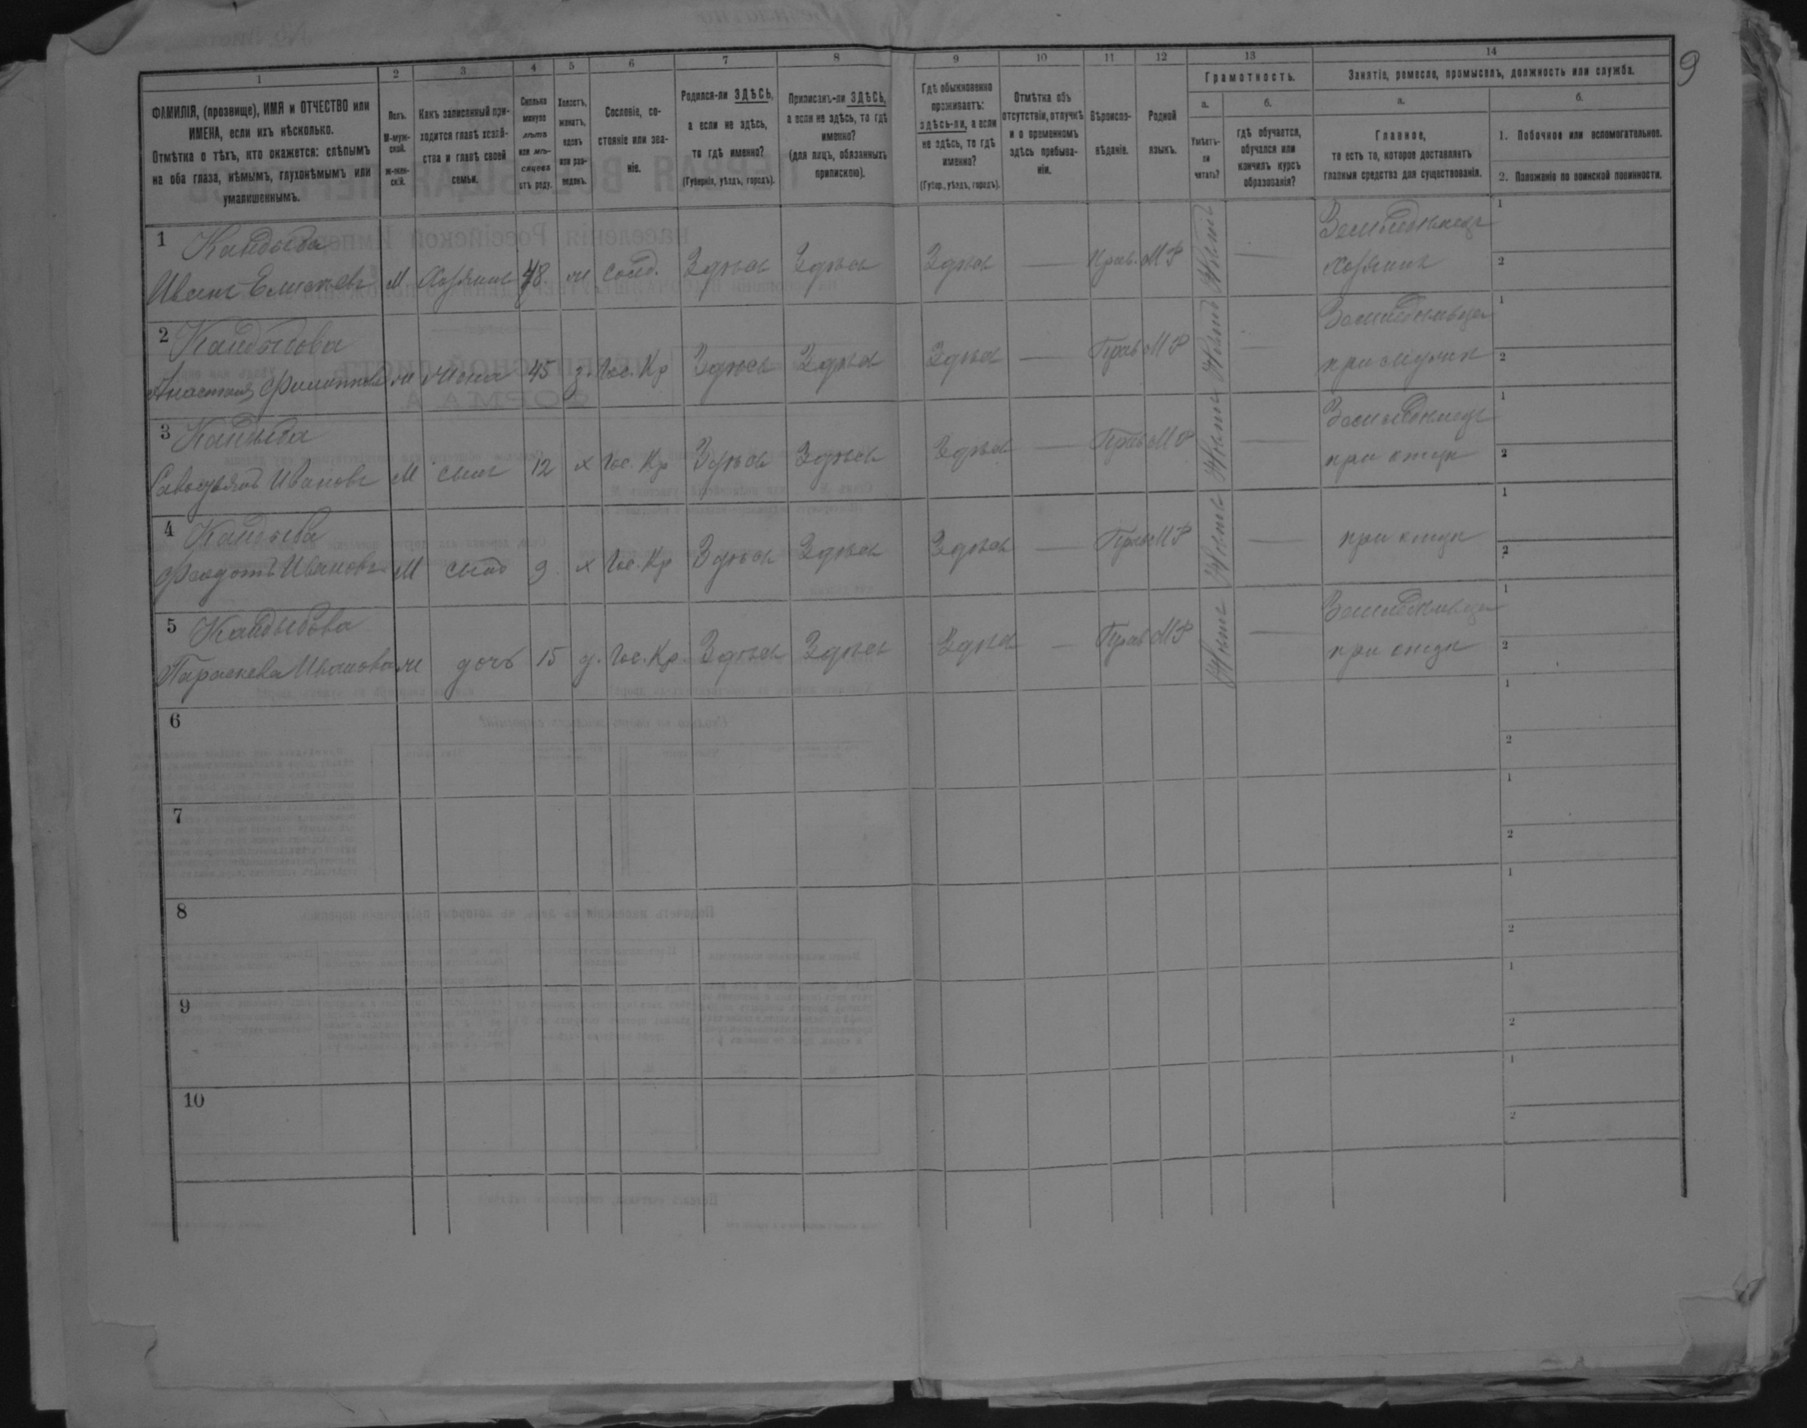 9
1 2 3 4 5 6 7 8 9 10 11 12 13 14
ФАМИЛІЯ, (прозвище), ИМЯ и ОТЧЕСТВО или
ИМЕНА, если ихъ нѣсколько.
Отмѣтка о тѣхъ, кто окажется: слѣпымъ
на оба глаза, нѣмымъ, глухонѣмымъ или
умалишеннымъ.
Полъ.
М-муж-
ской.
ж-жен-
скій.
Какъ записанный при-
ходится главѣ хозяй-
ства и главѣ своей
семьи.
Сколько
минуло
лѣтъ
или мѣ-
сяцевъ
отъ роду.
Холостъ,
женатъ,
вдовъ
или раз-
веденъ.
Сословіе, со-
стояніе или зва-
ніе.
Родился-ли ЗДѢСЬ,
а если не здѣсь,
то гдѣ именно?
(Губернія, уѣздъ, городъ).
Приписанъ-ли ЗДѢСЬ,
а если не здѣсь, то гдѣ
именно?
(для лицъ, обязанныхъ
припискою).
Гдѣ обыкновенно
проживаетъ:
здѣсь-ли, а если
не здѣсь, то гдѣ
именно?
(Губер., уѣздъ, городъ).
Отмѣтка объ
отсутствіи, отлучкѣ
и о временномъ
здѣсь пребыва-
ніи.
Вѣроиспо-
вѣданіе.
Родной
языкъ.
Грамотность.
а.
Умѣетъ-
ли
читать?
б.
гдѣ обучается,
обучался или
кончилъ курсъ
образованія?
Занятіе, ремесло, промыселъ, должность или служба.
а.
Главное,
то есть то, которое доставляетъ
главныя средства для существованія.
б.
1. Побочное или вспомогательное.
2. Положеніе по воинской повинности.
1 Кандыба
Иванъ М Хозяинъ 48 ж Здѣсь Здѣсь Здѣсь — Прав. МР Нѣтъ — 1
хозяинъ 2
2 Кандыбова
ж жена 45 з. Гос. Кр Здѣсь Здѣсь Здѣсь — Прав МР Нѣтъ — 1
при мужѣ 2
3 Кандыба
Ивановъ М сынъ 12 х Гос. Кр Здѣсь Здѣсь Здѣсь — Прав МР Нѣтъ — 1
при отцѣ 2
4 Кандыба
Федотъ Ивановъ М сынъ 9 х Гос. Кр Здѣсь Здѣсь Здѣсь — Прав МР Нѣтъ — при отцѣ 1
2
5 Кандыбова
Параскева Иванова ж дочь 15 д. Гос. Кр Здѣсь Здѣсь Здѣсь — Прав МР Нѣтъ — 1
при отцѣ 2
6 1
2
7 1
2
8 1
2
9 1
2
10 1
2